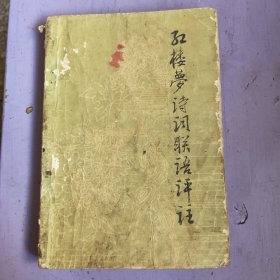 红楼夢诗词联语评注